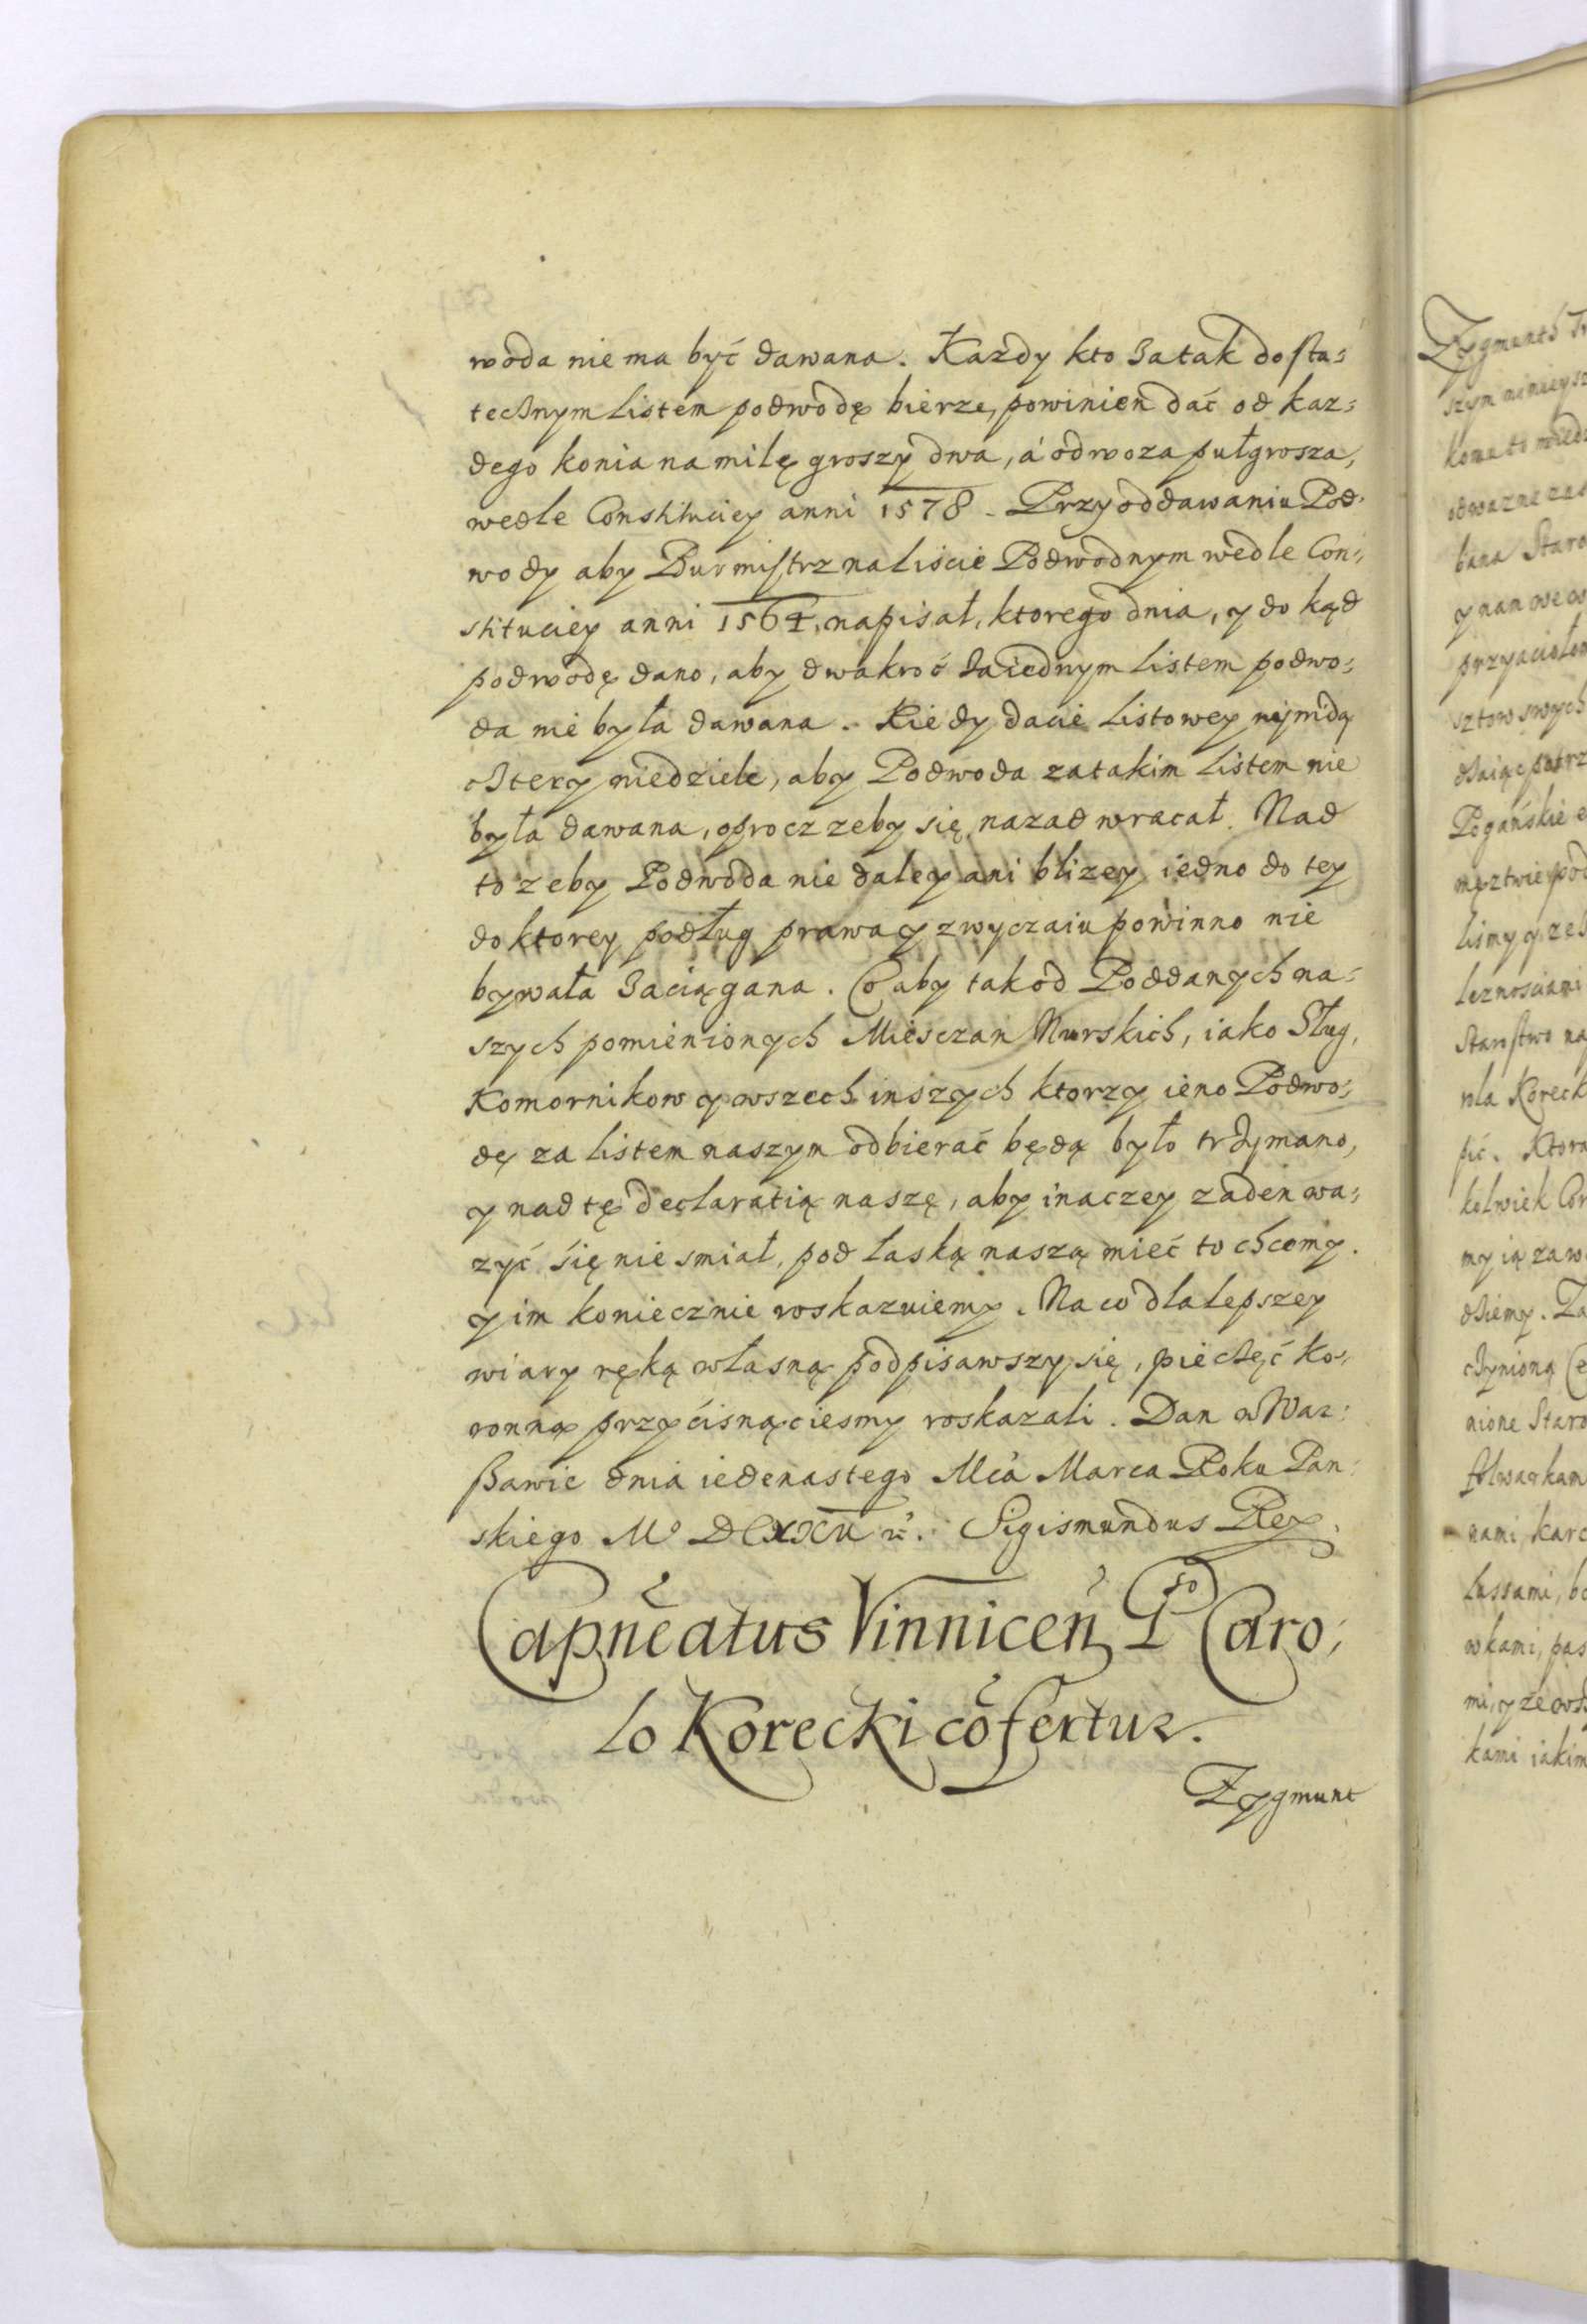 woda nie ma być dawana. Kazdy kto za tak dosta⸗
tecznym listem podwodę bierze, powinien dać od kaz⸗
dego konia na milę groszy dwa, á od woza pułgrosza,
wedle Constituciey anni 1578. Przy oddawaniu Pod⸗
wody aby Burmistrz na liscie Podwodnym wedle Con⸗
stituciey anni 1564, napisał, ktorego dnia, y do kąd
podwodę dano, aby dwakroć za iednym listem podwo⸗
da nie była dawana. Kiedy dacie listowey wynidą
cztery niedziele, aby Podwoda za takim listem nie
była dawana, oprocz zeby się nazad wracał. Nad
to zeby Podwoda nie daley ani blizey iedno do tey
do ktorey podług prawa y zwyczaiu powinno nie
bywała zaciągana. Co aby tak od Poddanych na⸗
szych pomienionych Miesczan Nurskich, iako Sług,
Komornikow y wszech inszych ktorzy ieno Podwo⸗
dę za listem naszym odbierać będą było trzymano,
y nad tę declaratią naszę, aby inaczey zaden wa⸗
zyć się nie smiał, pod łaską naszą mieć to chcemy.
y im koniecznie roskazuiemy. Na co dla lepszey
wiary ręką własną podpisawszy się, pieczęć ko⸗
ronną przycisnąciesmy roskazali. Dan w War⸗
ßawie dnia iedenastego Mca Marca Roku Pan⸗
skiego Mº DCXXII Sigismundus Rex.
Capneatus Vinnicen Pso Caro⸗
lo Korecki cofertur.
Zygmunt
Zygmunt
szym ninieysz
komu to wied
odwazne zas
bana Staro
przyacioło
sztow swych
Pogańskie
męztwie pod
lismy y ze
leznosciami
Starostwo na
wla Koreck
pić. Ktora
kolwiek
my ią zaw
dziemy. Za
czynioną
nione Staro
folwarkam
nami, karc
lassami, bo
wkami, pas
mi, y ze
kami iakim